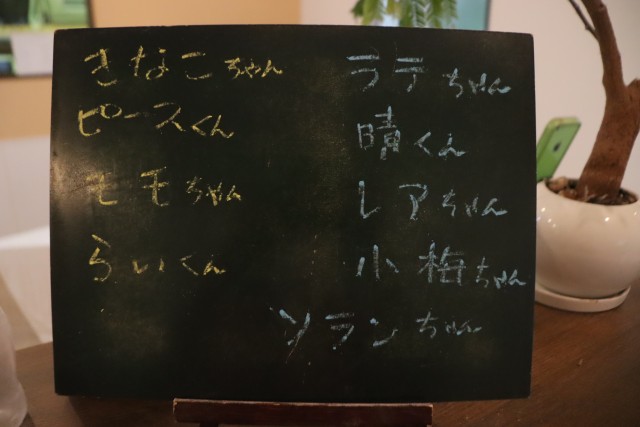 きなこちゃん
ピースくん
モモちゃん
らいくん
ラテちゃん
晴くん
レアちゃん
小梅ちゃん
ソランちゃん